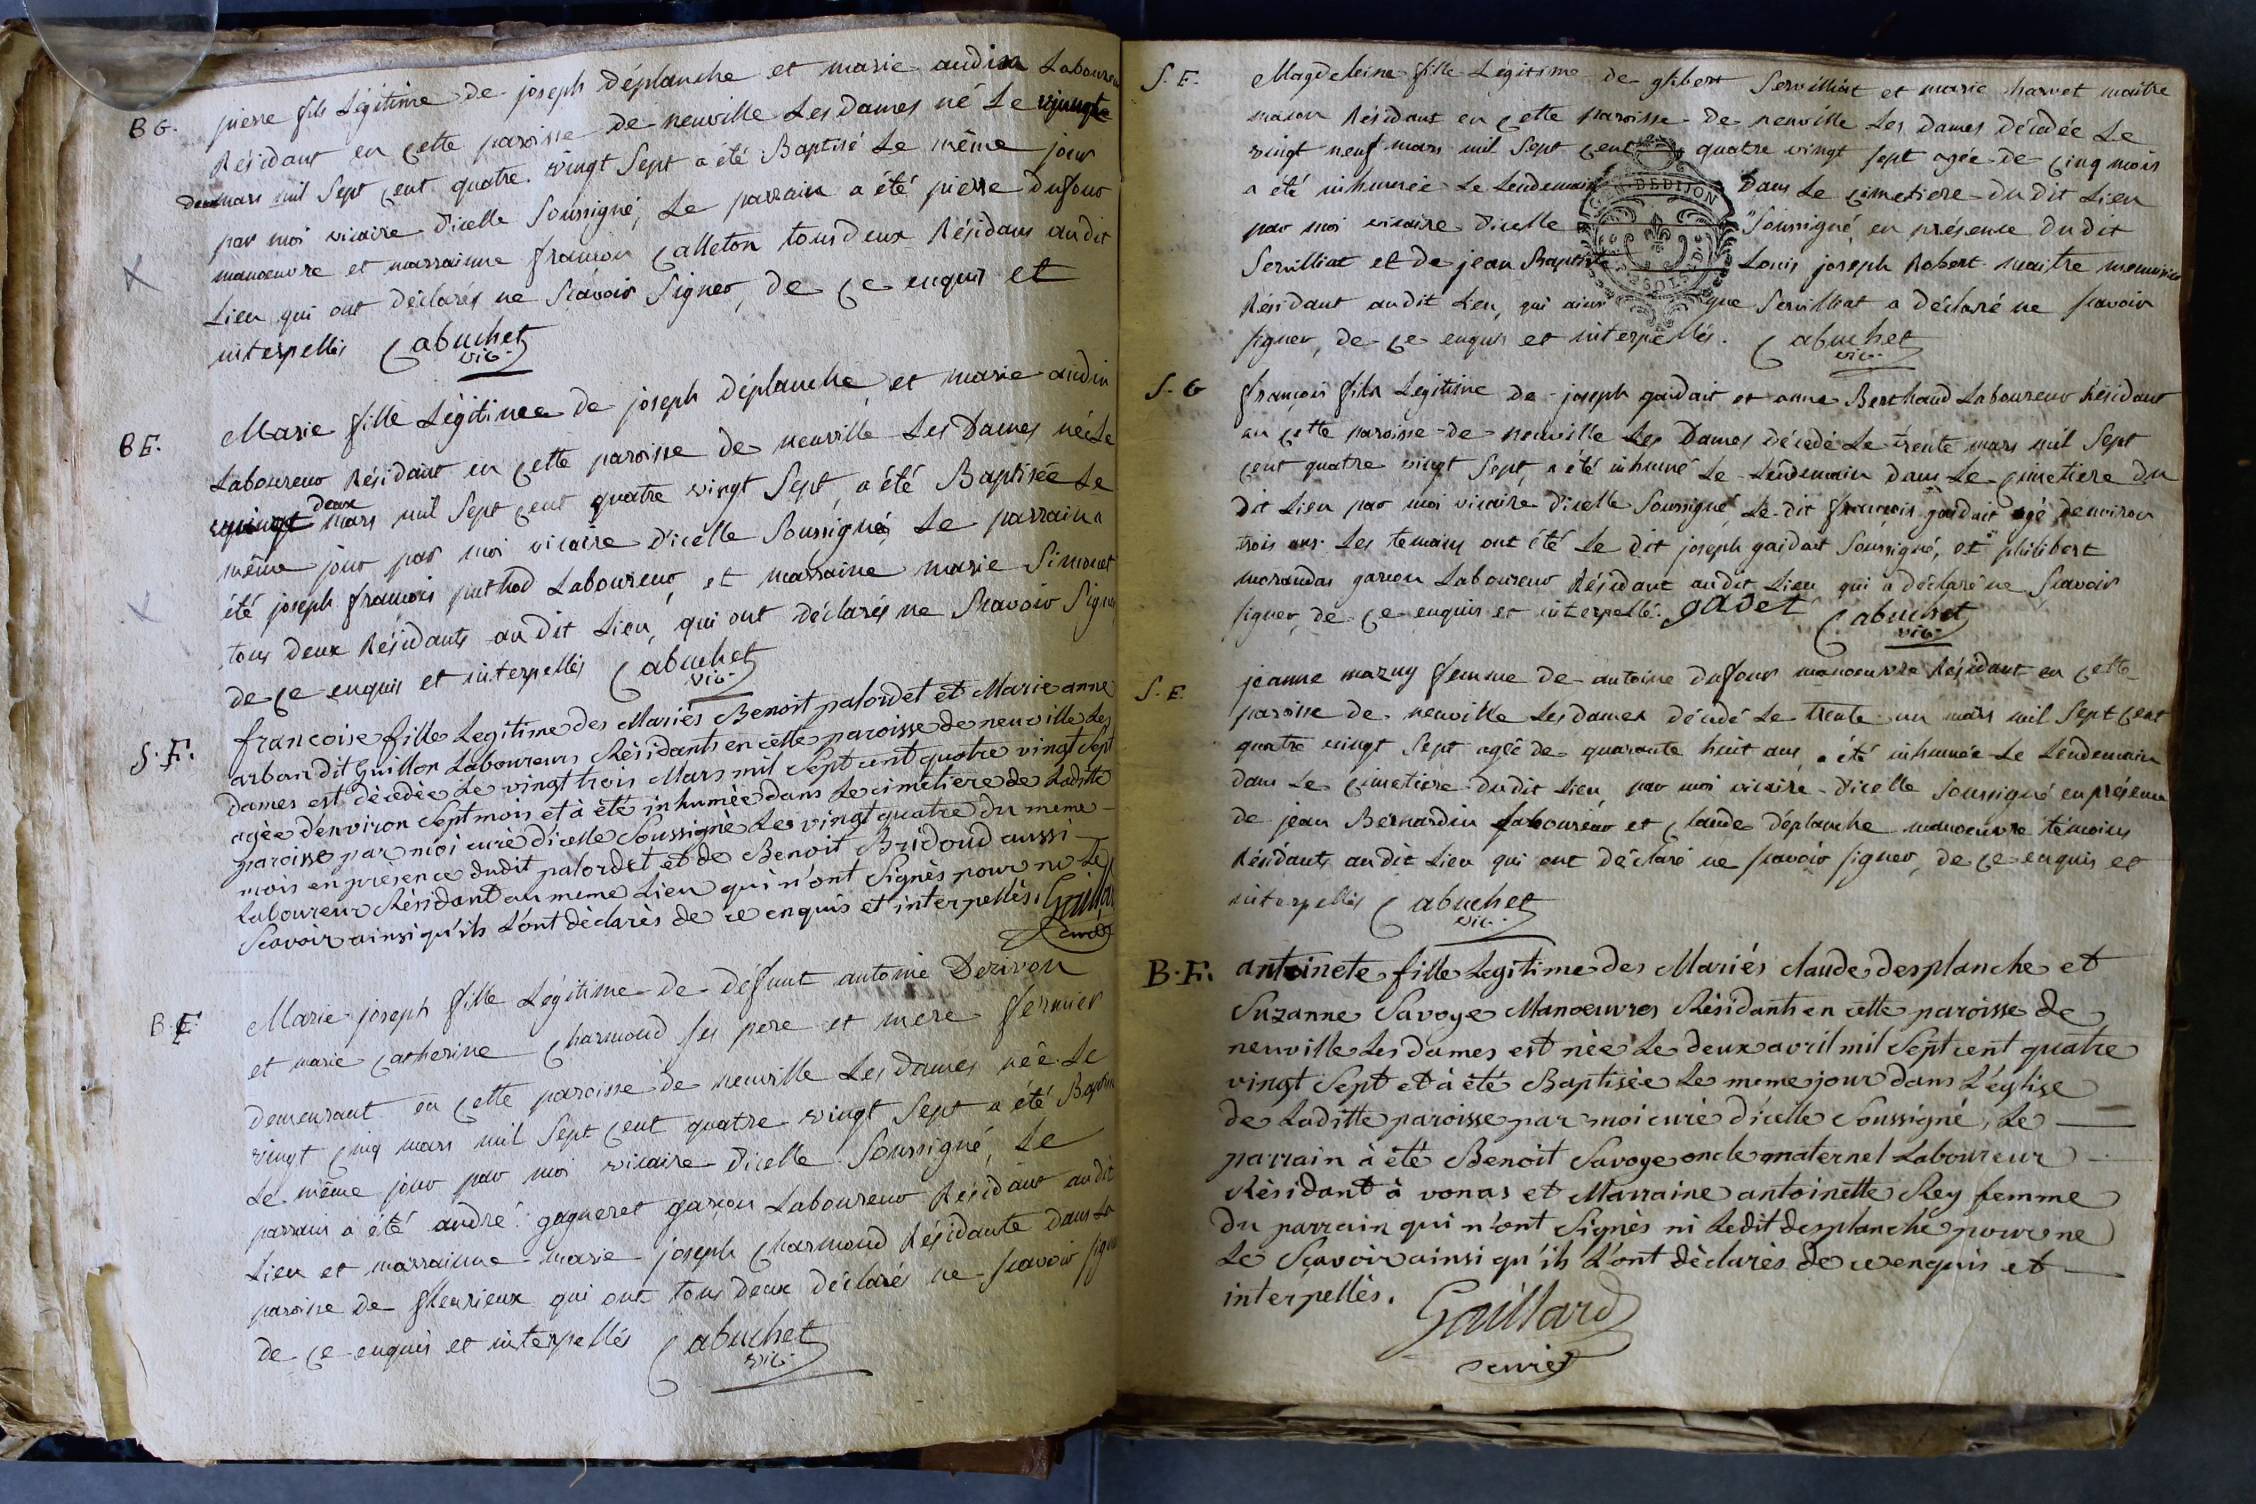 B G.
pierre fils Légitime de joseph déplanche et marie audin Laboureur
Résidant en cette paroisse de neuville Les Dames né Le
deux mars mil Sept cent quatre vingt Sept a été Baptisé Le même jour
par moi vicaire d'icelle Soussigné, Le parrain a été pierre dufour
manoeuvre et marrainne françon Calleton tous deux Résidans audit
Lieu qui ont déclarés ne Sçavoir Signer, de ce enquis et
interpellés Cabuchet
vic.
B F.
Marie fille Légitimee de joseph déplanche et marie audin
Laboureur Résidant en cette paroisse de neuville Les Dames née Le
deux
mars mil Sept cent quatre vingt Sept, a été Baptisée Le
même jour par moi vicaire d'icelle Soussigné, Le parrain a
été joseph françois puthod Laboureur, et marraine marie Simonet
tous deux Résidants audit Lieu, qui ont déclarés ne Scavoir Signer
de ce enquis et interpellés Cabuchet
vic.
S. F.
francoise fille Legitime des Mariés Benoit palordet et Marie anne
arban dit Guillon Laboureurs Résidants en cètte paroisse de neuville Les
dames est dècèdèe Le vingt trois Mars mil Sept cent quatre vingt Sept
agèe d'environ Sept mois et à ètè inhumèe dans Le cimetiere de Laditte
paroisse par moi curè d'icelle Soussignè Le vingt quatre du meme
mois en prèsence dudit palordet et de Benoit Bridoud aussi
Laboureur Rèsidant au meme Lieu qui n'ont Signès pour ne Le
Scavoir ainsi qu'ils L'ont dèclarès de ce enquis et interpellès. Gaillard
curé
B F
Marie joseph fille Légitime de défunt antoine Derivon
et marie catherine Charmond Ses pere et mere fermier
demeurant en cette paroisse de neuville Les Dames née Le
vingt cinq mars mil Sept cent quatre vingt Sept a été Baptisée
Le même jour par moi vicaire d'icelle Soussigné, Le
parrain a été andré gagneret garçon Laboureur Résidant audit
Lieu et marrainne marie joseph Charmond Résidante dans La
paroisse de fleurieux qui ont tous deux déclarés ne Scavoir Signer
de ce enquis et interpellés Cabuchet
vic.
S. F.
Magdeleine fille Légitime de glibert Servilliat et marie harvet maitre
macon Résidant en cette paroisse de neuville Les Dames décédée Le
vingt neuf mars mil Sept cent quatre vingt sept agée de cinq mois
a été inhumée Le Lendemain Dans Le cimetiere du dit Lieu
par moi vicaire d'icelle Soussigné en présence du dit
Servilliat et de jean Baptiste Louis joseph Robert maitre menuisier
Résidant audit Lieu, qui ainsi que Servilliat a déclaré ne scavoir
signer, de ce enquis et interpellés. Cabuchet
vic.
G. DE DIJON
S. G
françois fils Legitime de joseph gaidait et anne Berthaud Laboureur Résidant
en cette paroisse de neuville Les Dames décédé Le trente mars mil Sept
cent quatre vingt Sept, a été inhumé Le Lendemain dans Le cimetiere du
dit Lieu par moi vicaire d'icelle Soussigné, Le dit françois gaidait agé d'environ
trois ans. Les temoins ont été Le dit joseph gaidait Soussigné, et philibert
morandas garçon Laboureur Résidant audit Lieu qui a déclaré ne Scavoir
signer, de ce enquis et interpellé. gadet Cabuchet
vic.
S. F
jeanne mazuy femme de antoine dufour manoeuvre Résidant en cette
paroisse de neuville Les dames décédé Le trente un mars mil Sept cent
quatre vingt Sept agée de quarante huit ans, a été inhumée Le Lendemain
dans Le cimetiere dudit Lieu par moi vicaire d'icelle Soussigné en présence
de jean Bernardin Laboureur et claude déplanche manoeuvre témoins
Résidants audit Lieu qui ont déclaré ne scavoir signer, de ce enquis et
interpellés Cabuchet
vic.
B. F.
antoinete fille Legitime des Mariés claude desplanche et
Suzanne Savoye Manoeuvres Rèsidants en cètte paroisse de
neuville Les dames est nèe Le deux avril mil Sept cent quatre
vingt Sept et à ètè Baptisèe Le meme jour dans L'eglise
de Laditte paroisse par moi curè d'icelle Soussigné, Le
parrain à ètè Benoit Savoye oncle maternel Laboureur
Rèsidant à vonas et Marraine antoinette Rey femme
du parrain qui n'ont Signès ni Ledit desplanche pour ne
Le Scavoir ainsi qu'ils L'ont dèclarès de ce enquis et
interpellès.
Gaillard
curé